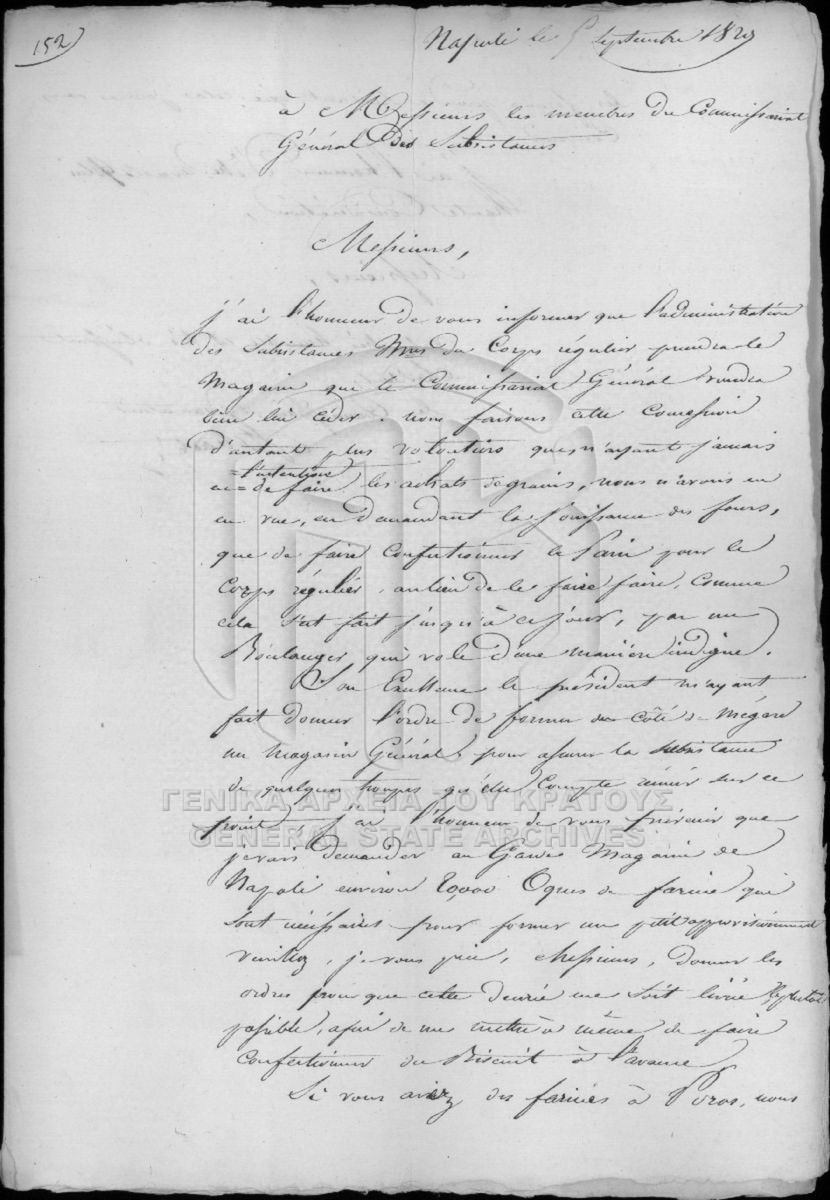 152
Napoli le 5 Septembre 1829
à Messieurs les membres du Commissariat
Général des Subsistances
Messieurs,
j'ai l'honneur de vous informer que l'administration
des Subsistances Mres du Corps régulier prendra le
Magasin que le Commissariat Général voudra
bien lui céder. nous faisons cette Concession
d'autant plus volontiers que n'ayant jamais
=l'intention
eu= de faire les achats de grains, nous n'avons eu
en vue, en demandant la jouissance des fours,
que de faire Confectionner le Pain pour le
Corps régulier, au lieu de le faire faire, Comme
cela s'est fait jusqu'à ce jour, par un
Boulanger qui vole d'une manière indigne.
Son Excellence le président m'ayant
fait donner l'ordre de former du côté de Mégare
un magasin Général pour assurer la subsistance
de quelques troupes qu'elle Compte réunir sur ce
point, j'ai l'honneur de vous prévenir que
je vais demander au Garde Magasin de
Napoli environ Oques de farine qui
sont nécessaires pour former un petit approvisionnement
veuillez, je vous prie, Messieurs, donner les
ordres pour que cette denrée me soit livrée le plutôt
possible, afin de me mettre à même de faire
Confectionner du Biscuit à l'avance
Si vous aviez des farines à Poros, nous
ΓΕΝΙΚΑ ΑΡΧΕΙΑ ΤΟΥ ΚΡΑΤΟΥΣ
GENERAL STATE ARCHIVES